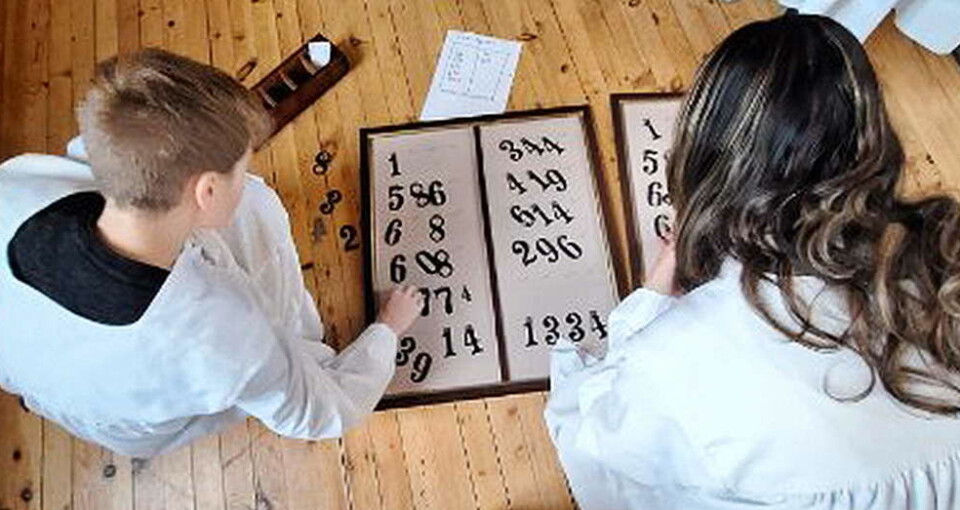 1
586
6 8
6 08
774
39 14
344
419
614
296
1334
1
5
6
6
8
8
2